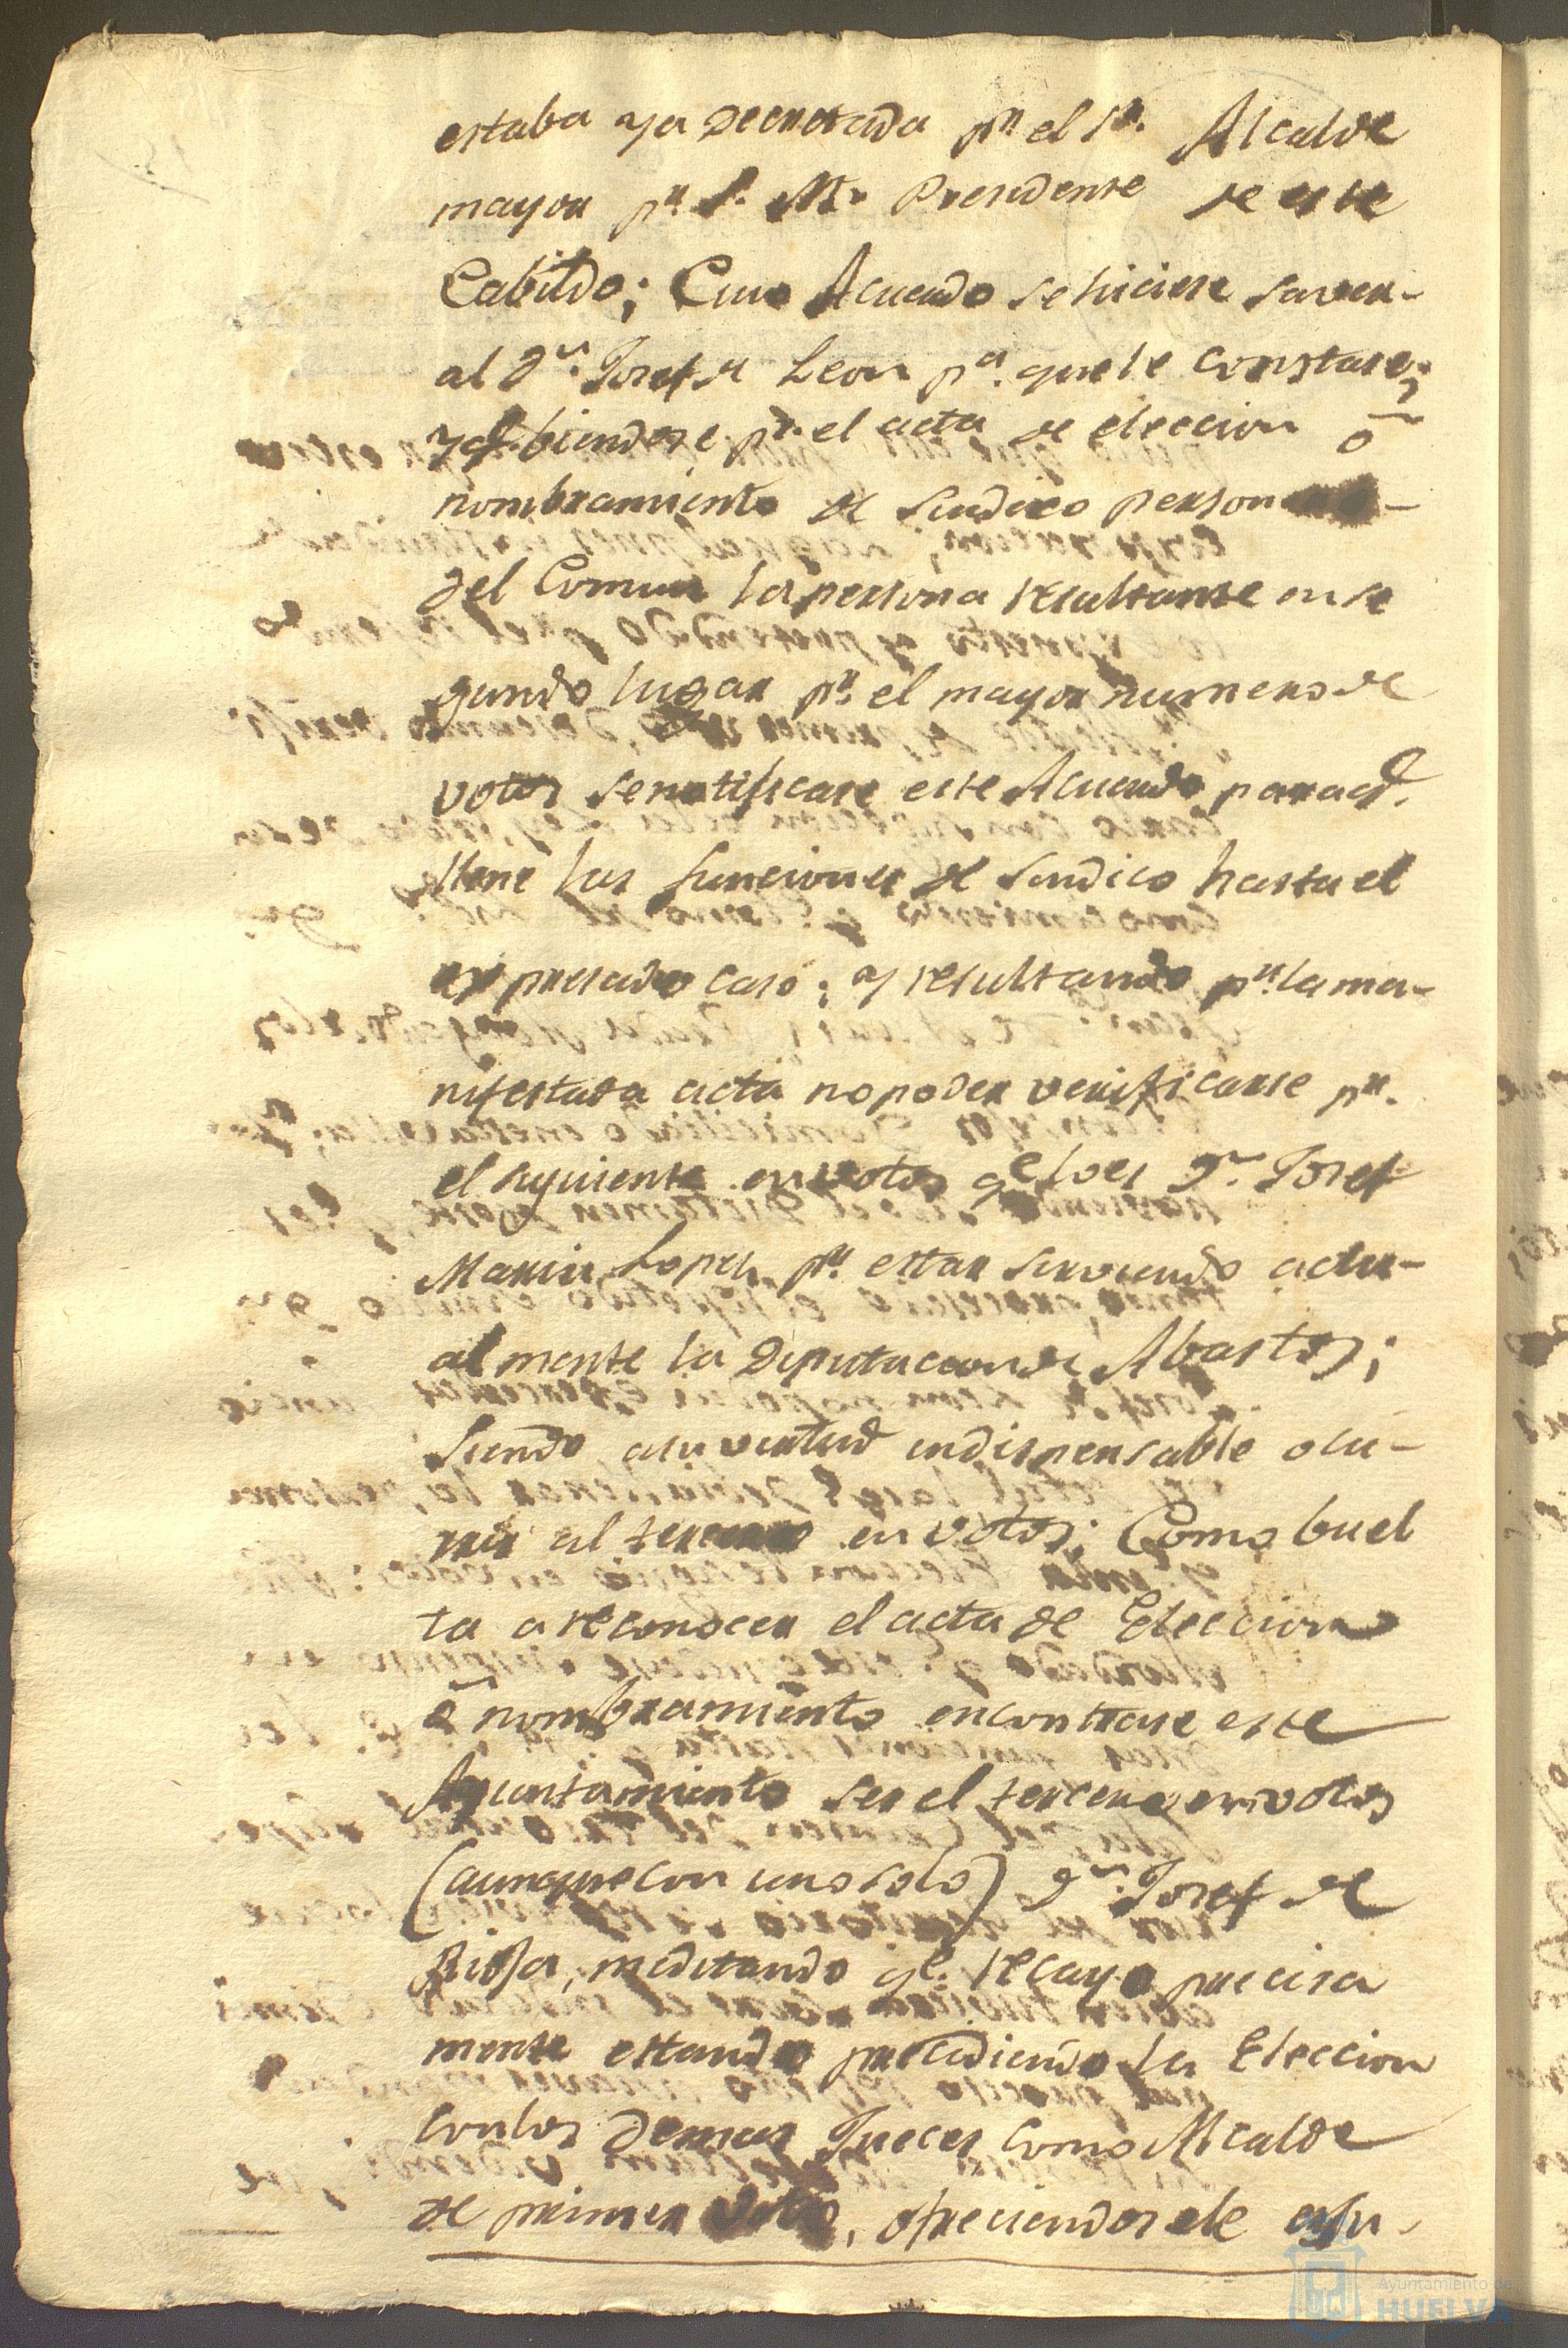 estaba ya decretada pr. el Sr. Alcalde
mayor pr. S. M. Presidente de este
Cabildo; Cuio Acuerdo se hiciese saver
al Dn. Josef de Leon pa. que le constase;
el acta de eleccion ó
nombramiento de Sindico personero
del Comun la persona resultante en se
gundo lugar pr. el mayor numero de
votos se notificase este Acuerdo para qe.
llene las funciones de Sindico hasta el
expresado caso; y resultando pr. la ma-
nifestada acta no poder verificarse pr.
el siguiente en votos qe. lo es Dn. Josef
Maria Lopez pr. estar sirviendo actu-
almente la Diputacion de Abastos;
Siendo a su virtud indispensable ocu-
rrir al tercero en votos; Como buel
ta a reconocer el acta de Eleccion
ó nombramiento encontrase este
Ayuntamiento ser el tercero en votos
(aunque con uno solo) Dn. Josef de
Rioja, meditando qe. recayo precisa
mente estando precidiendo la Eleccion
con los demas Jueces como Alcalde
de primer voto, ofreciendosele a su
Ayuntamiento de
HUELVA